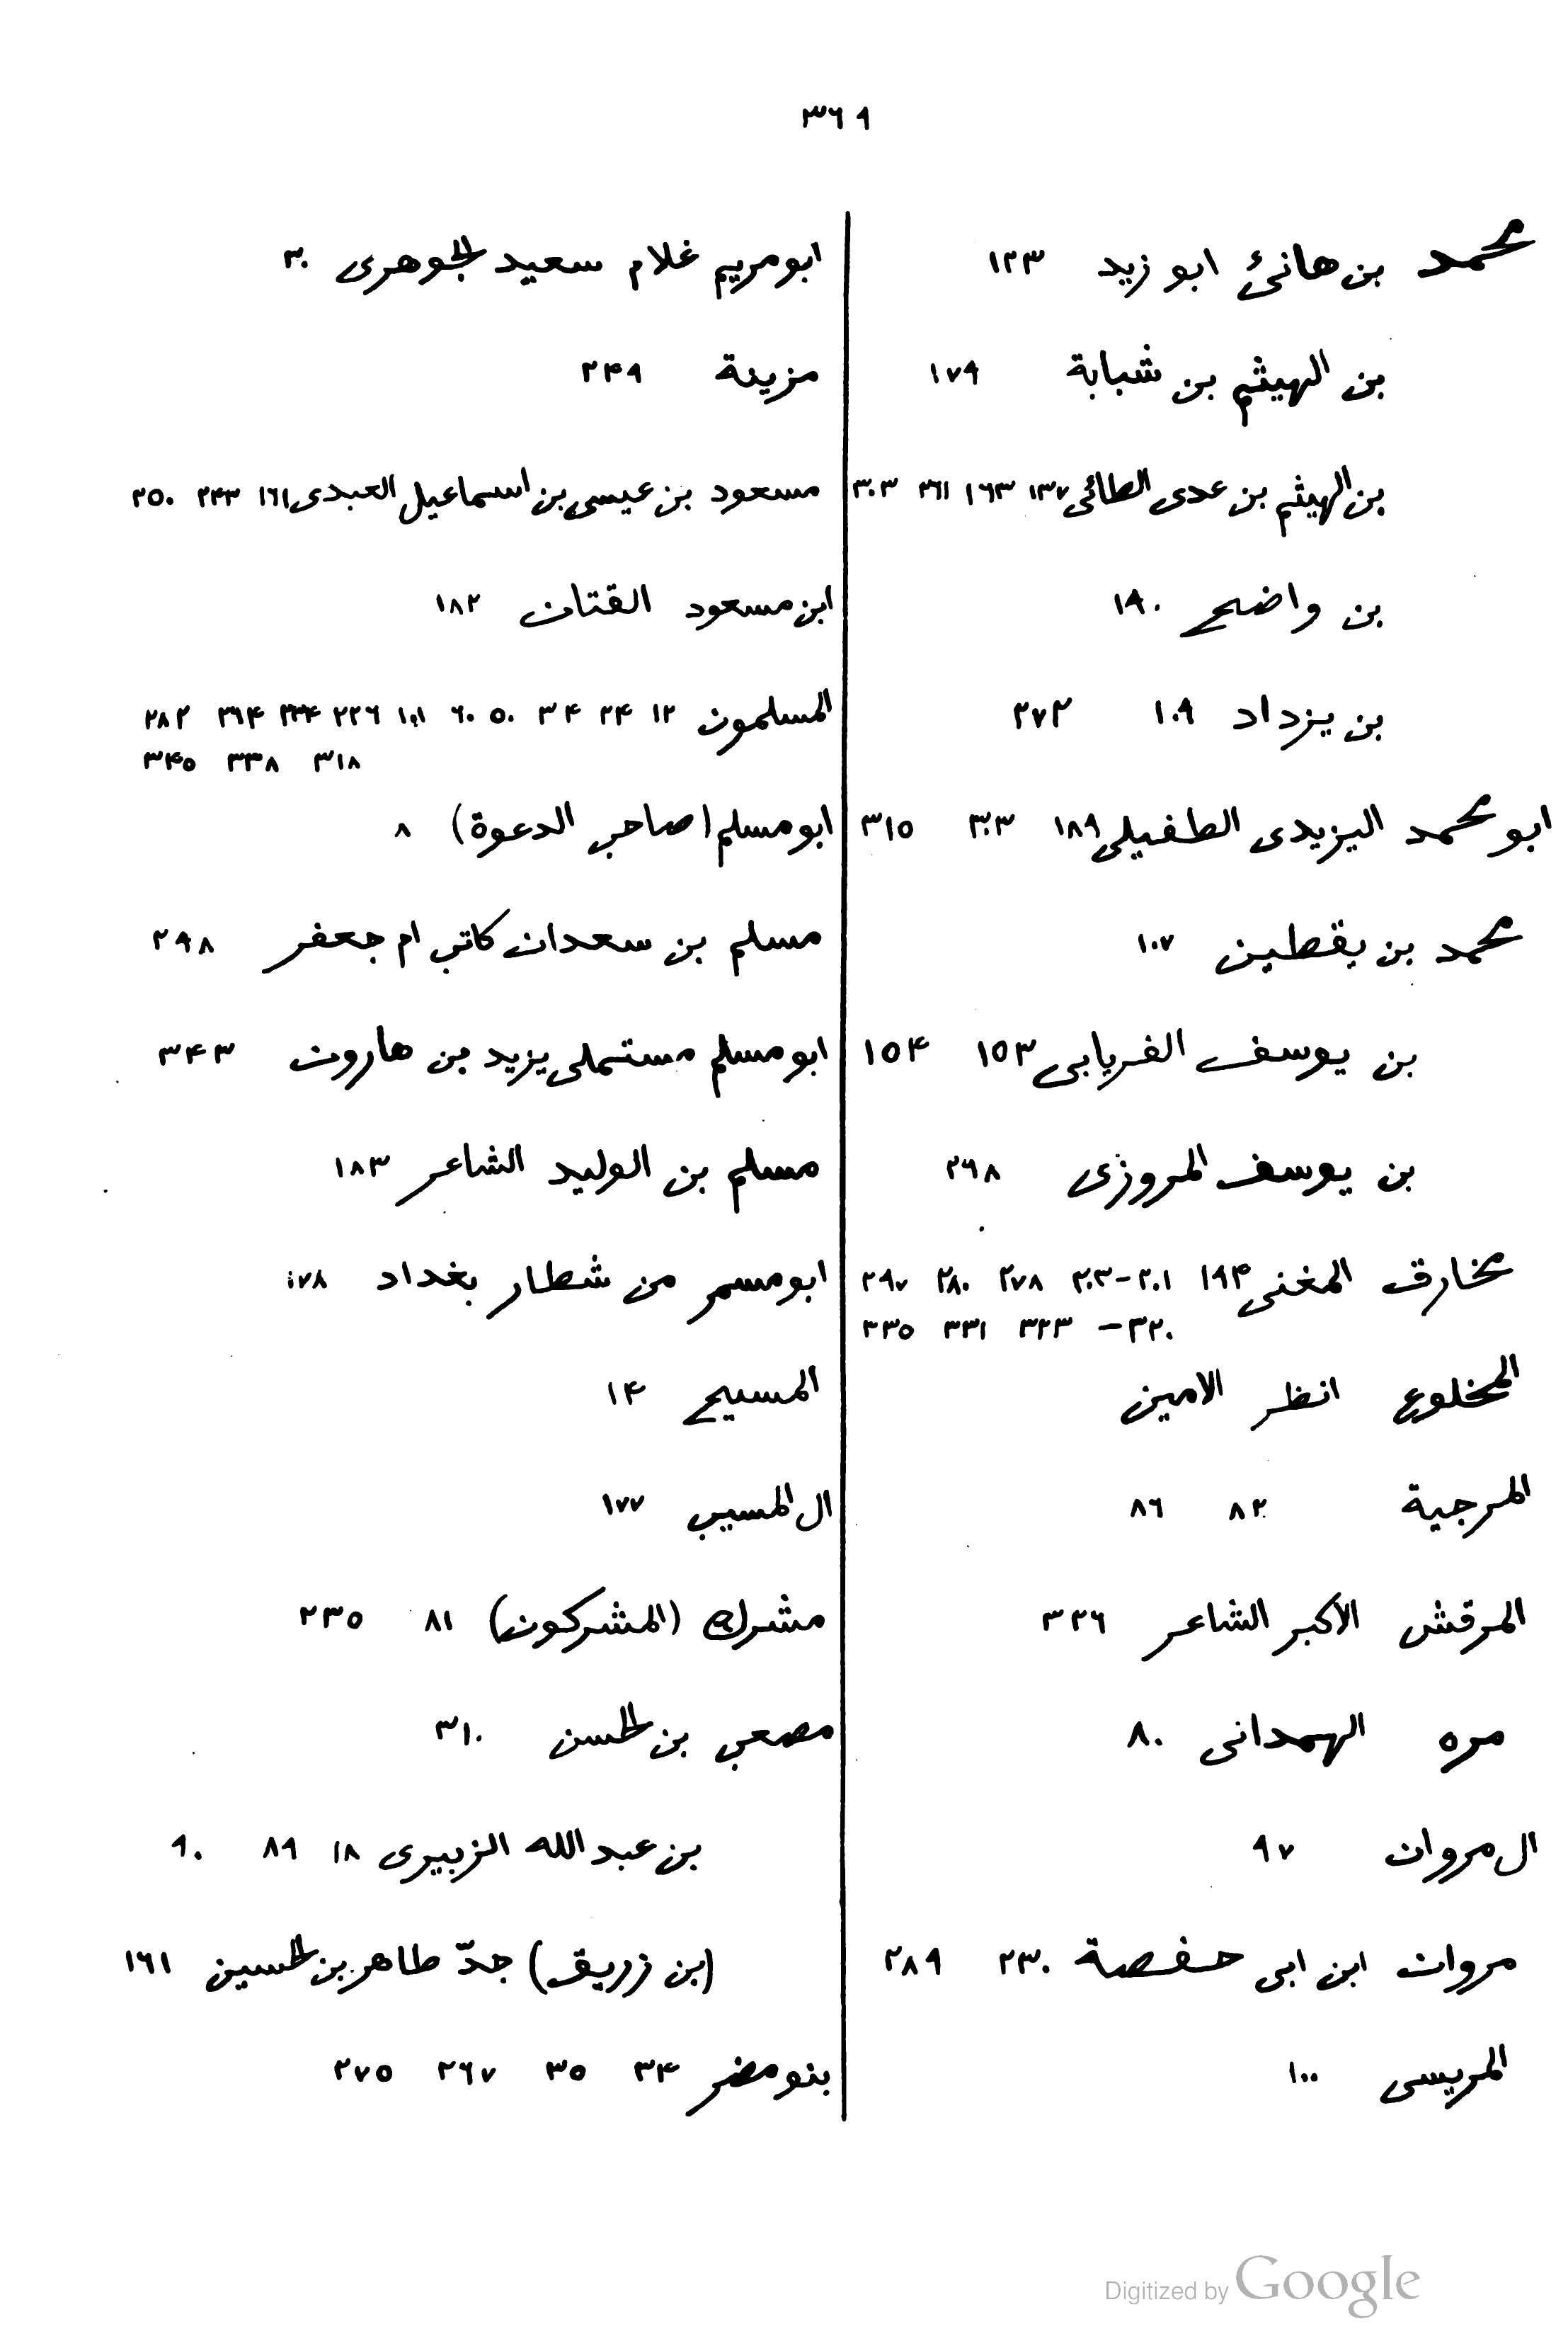 ٣٦٩
محمد بن هانئ ابو زيد ١٢٣
بن الهيثم بن شبابة ١٧٩
بن الهيثم بن عدى الطائى ١٣٧ ١٦٣ ٢٦١ ٣٠٣
بن واضح ١٩٠
بن يزداد ١٠٩ ٢٧٢
ابو محمد اليزيدى الطفيلى ١٨٩ ٣٠٣ ٣١٥
محمد بن يقطين ١٠٧
بن يوسف الفريابى ١٥٣ ١٥٤
بن يوسف المروزى ٢٦٨
مخارق المغنى ١٩٤ ٢٠١-٢٠٣ ٢٧٨ ٢٨٠ ٢٩٧
٣٢٠- ٣٢٣ ٣٣١ ٣٣٥
المخلوع انظر الامين
المرجية ٨٢ ٨٦
المرقش الأكبر الشاعر ٣٢٦
مره الهمدانى ٨٠
ال مروان ٩٧
مروان ابن ابى حفصة ٢٣٠ ٢٨٩
المريسى ١٠٠
ابو مريم غلام سعيد الجوهرى ٣٠
مزينة ٢٤٩
مسعود بن عيسى بن اسماعيل العبدى ١٦١ ٢٤٣ ٢٥٠
ابن مسعود القتات ١٨٢
المسلمون ١٢ ٢٤ ٣٤ ٥٠ ٦٠ ١٠١ ٢٢٦ ٢٣٤ ٢٦٤ ٢٨٢
٣١٨ ٣٣٨ ٣٤٥
ابو مسلم (صاحب الدعوة) ٨
مسلم بن سعدان كاتب ام جعفر ٢٩٨
ابو مسلم مستملى يزيد بن هارون ٣٤٣
مسلم بن الوليد الشاعر ١٨٣
ابو مسمر من شطار بغداد ١٧٨
المسيح ١٤
ال المسيب ١٧٧
مشرك (المشركون) ٨١ ٢٣٥
مصعب بن الحسن ٣١٠
بن عبد الله الزبيرى ١٨ ٨٩ ٩٠
(بن زريق) جدّ طاهر بن الحسين ١٦١
بنو مضر ٣٤ ٣٥ ٢٦٧ ٢٧٥
Digitized by Google